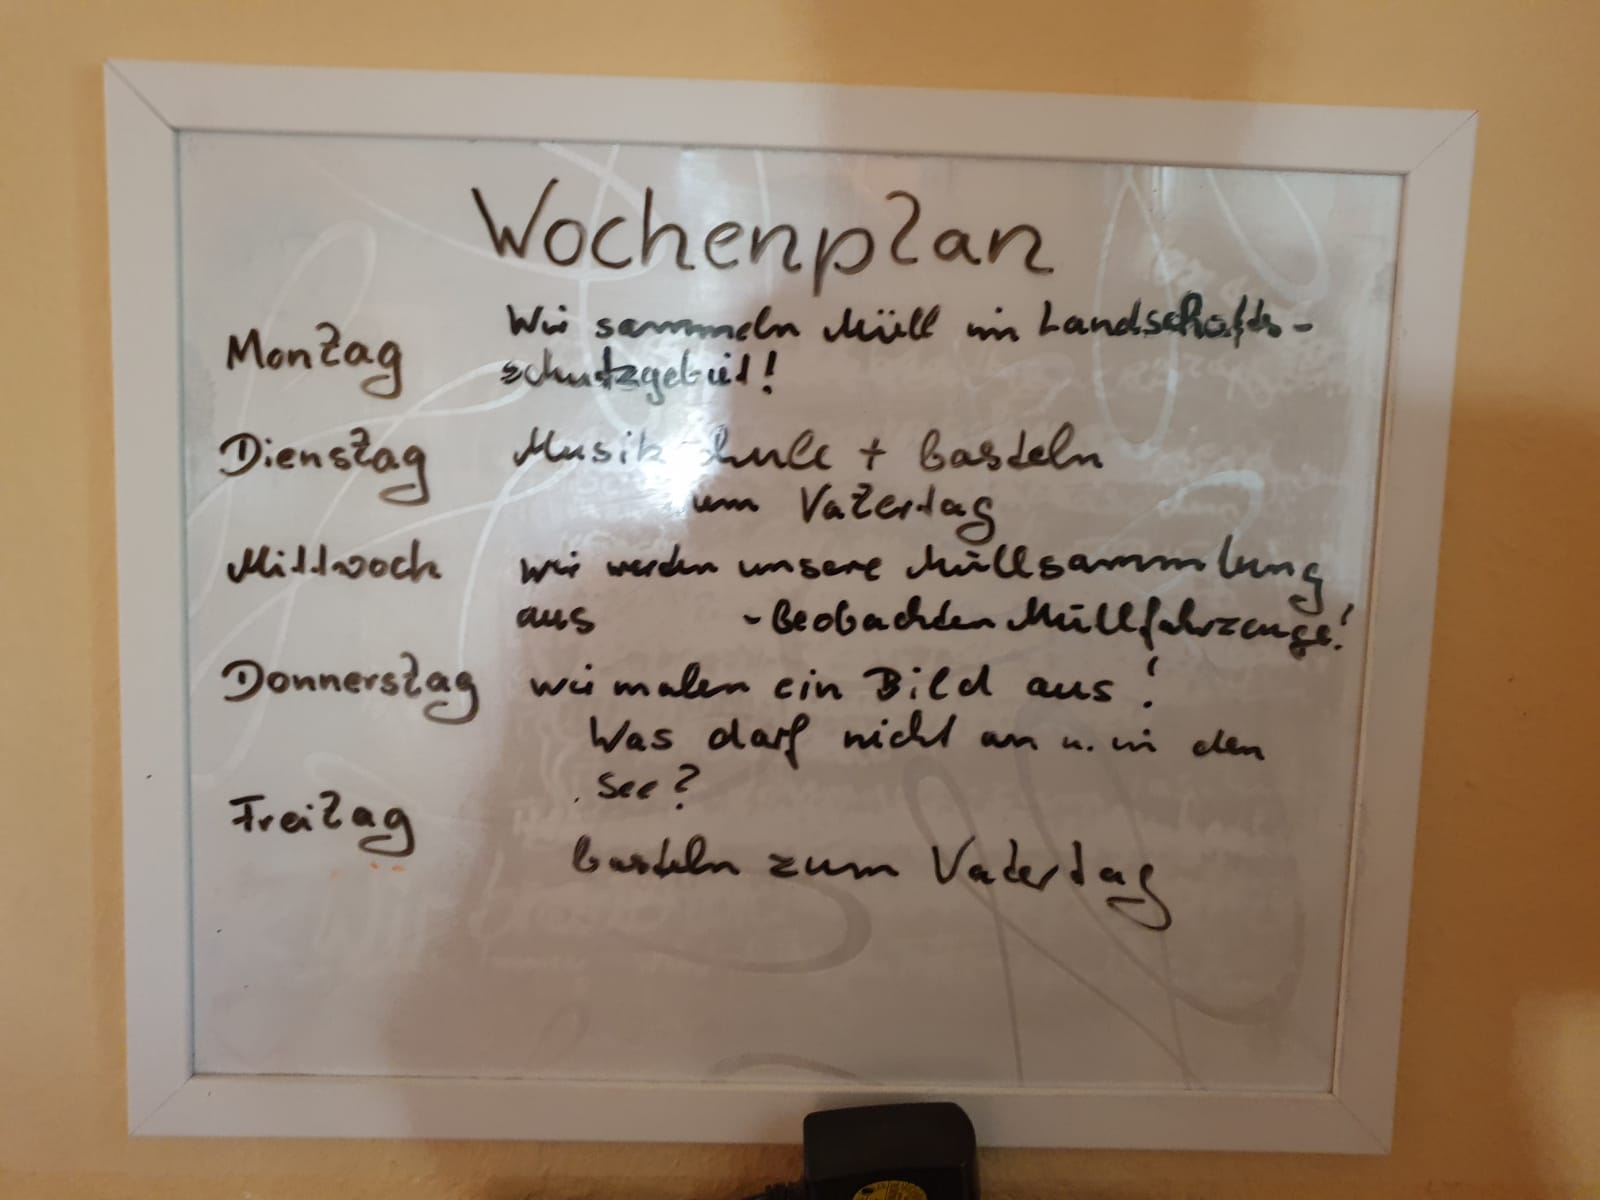 Wochenplan
Montag Wir sammeln Müll im Landschafts-
schutzgebiet!
Dienstag Musikschule + basteln
zum Vatertag
Mittwoch wir werden unsere Müllsammlung
aus - Beobachten Müllfahrzeuge!
Donnerstag wir malen ein Bild aus!
Was darf nicht an u. in den
See?
Freitag
basteln zum Vatertag